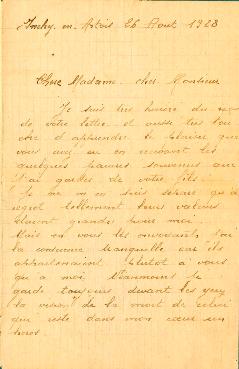 Inchy-en-Artois 26 Aout 1928
Chère Madame cher Monsieur
Je suis très heureux du reçu
de votre lettre et aussi très
d'apprendre le plaisir que
vous avez eu en recevant les
quelques pauvres souvenirs que
j'ai gardés de votre fils
Je ne m'en suis séparé qu'à
regret tellement leurs valeurs
étaient grande pour moi
Mais en vous les envoyant, j'ai
la conscience tranquille car ils
appartenaient plutôt à vous
qu'à moi Néanmoins je
garde toujours devant les yeux
la vision de la mort de celui
qui reste dans mon cœur un
héros